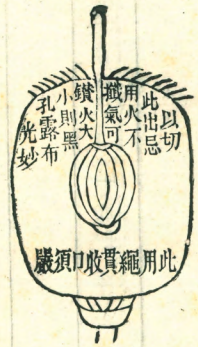 以切
此出忌
用火不
纖氣可
鑽火大
小則黑
孔露布
光妙
此用繩貫收口須嚴